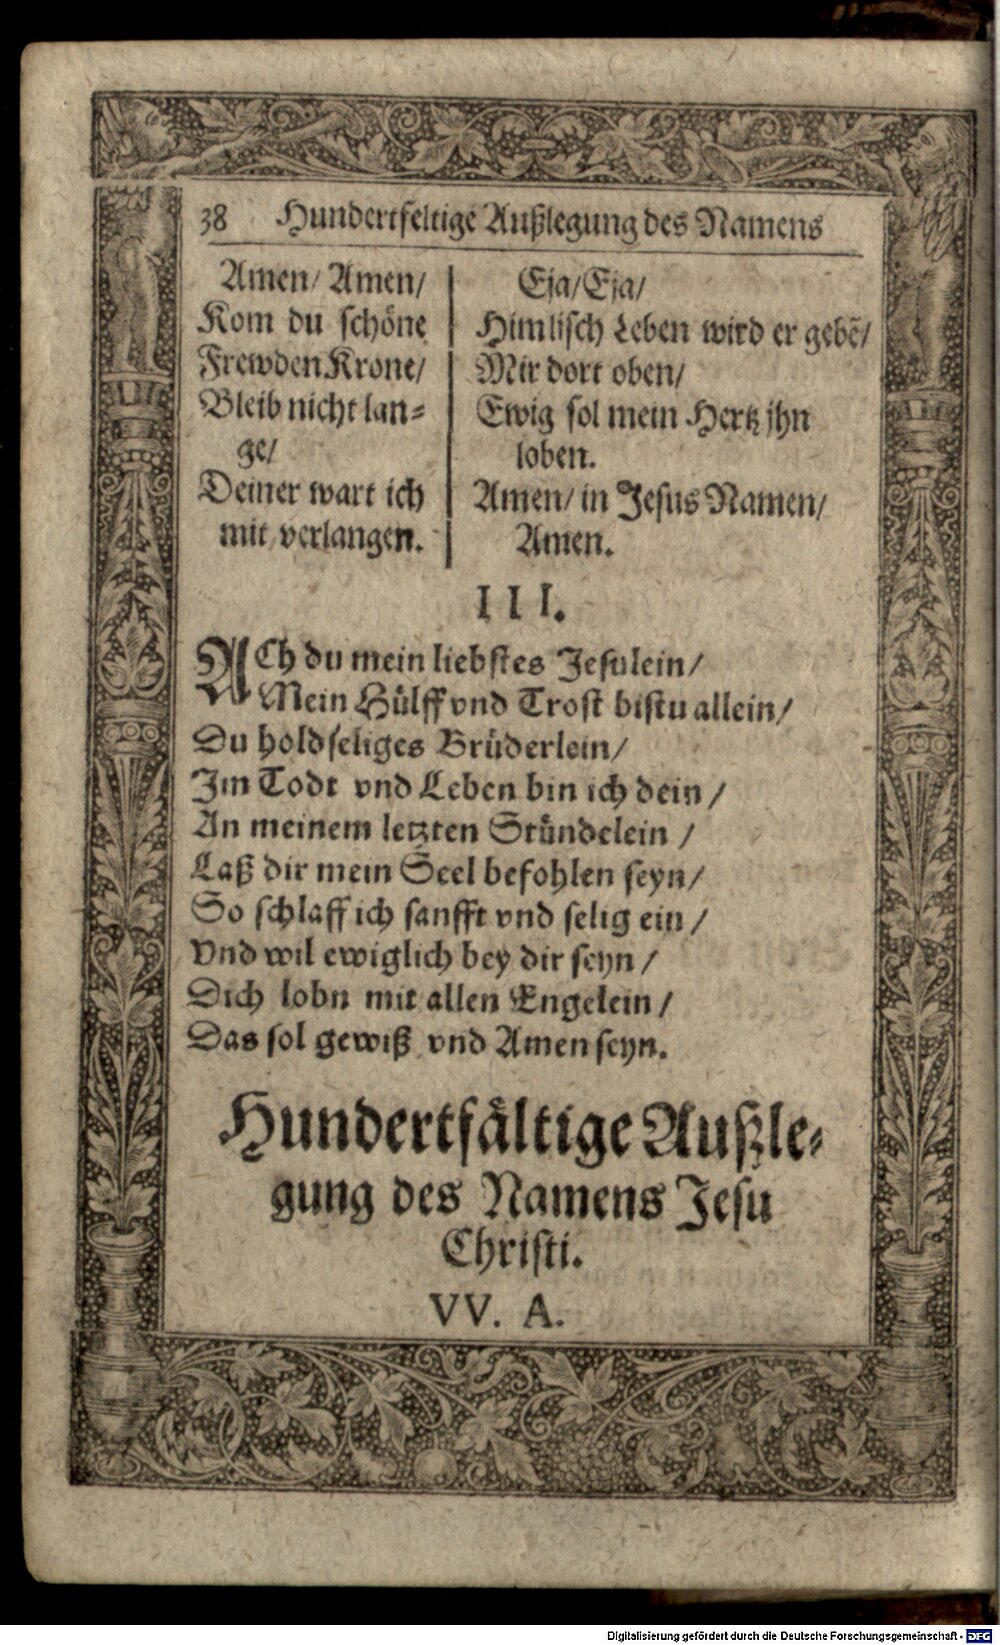 38 Hundertfeltige Außlegung des Namens
Amen/ Amen/
Kom du schöne
Frewden Krone/
Bleib nicht lan-
ge/
Deiner wart ich
mit verlangen.
Eja/ Eja/
Himlisch Leben wird er gebẽ/
Mir dort oben/
Ewig sol mein Hertz jhn
loben.
Amen/ in Jesus Namen/
Amen.
III.
ACh du mein liebstes Jesulein/
Mein Hülff vnd Trost bistu allein/
Du holdseliges Brüderlein/
Im Todt vnd Leben bin ich dein/
An meinem letzten Stündelein/
Laß dir mein Seel befohlen seyn/
So schlaff ich sanfft vnd selig ein/
Vnd wil ewiglich bey dir seyn/
Dich lobn mit allen Engelein/
Das sol gewiß vnd Amen seyn.
Hundertfältige Außle-
gung des Namens Jesu
Christi.
VV. A.
Digitalisierung gefördert durch die Deutsche Forschungsgemeinschaft - DFG